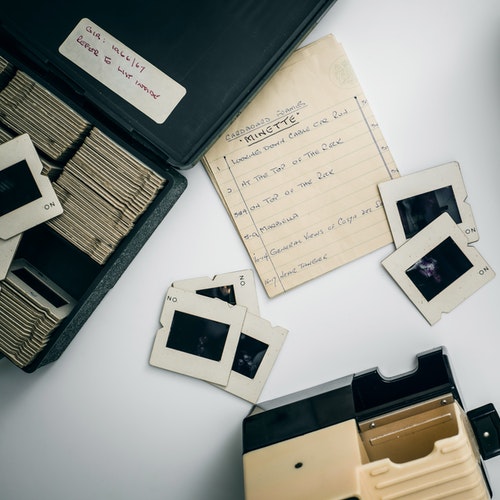 GIB: 1966/67
REFER TO LIST INSIDE
CARDBOARD
"MINETTE"
1 LOOKING DOWN CABLE CAR RUN
2 AT THE TOP OF THE ROCK
ON TOP OF THE ROCK
MARBELLA
GENERAL VIEWS OF COSTA DEL
NEAR TANGIER
NO
NO
NO
NO
NO